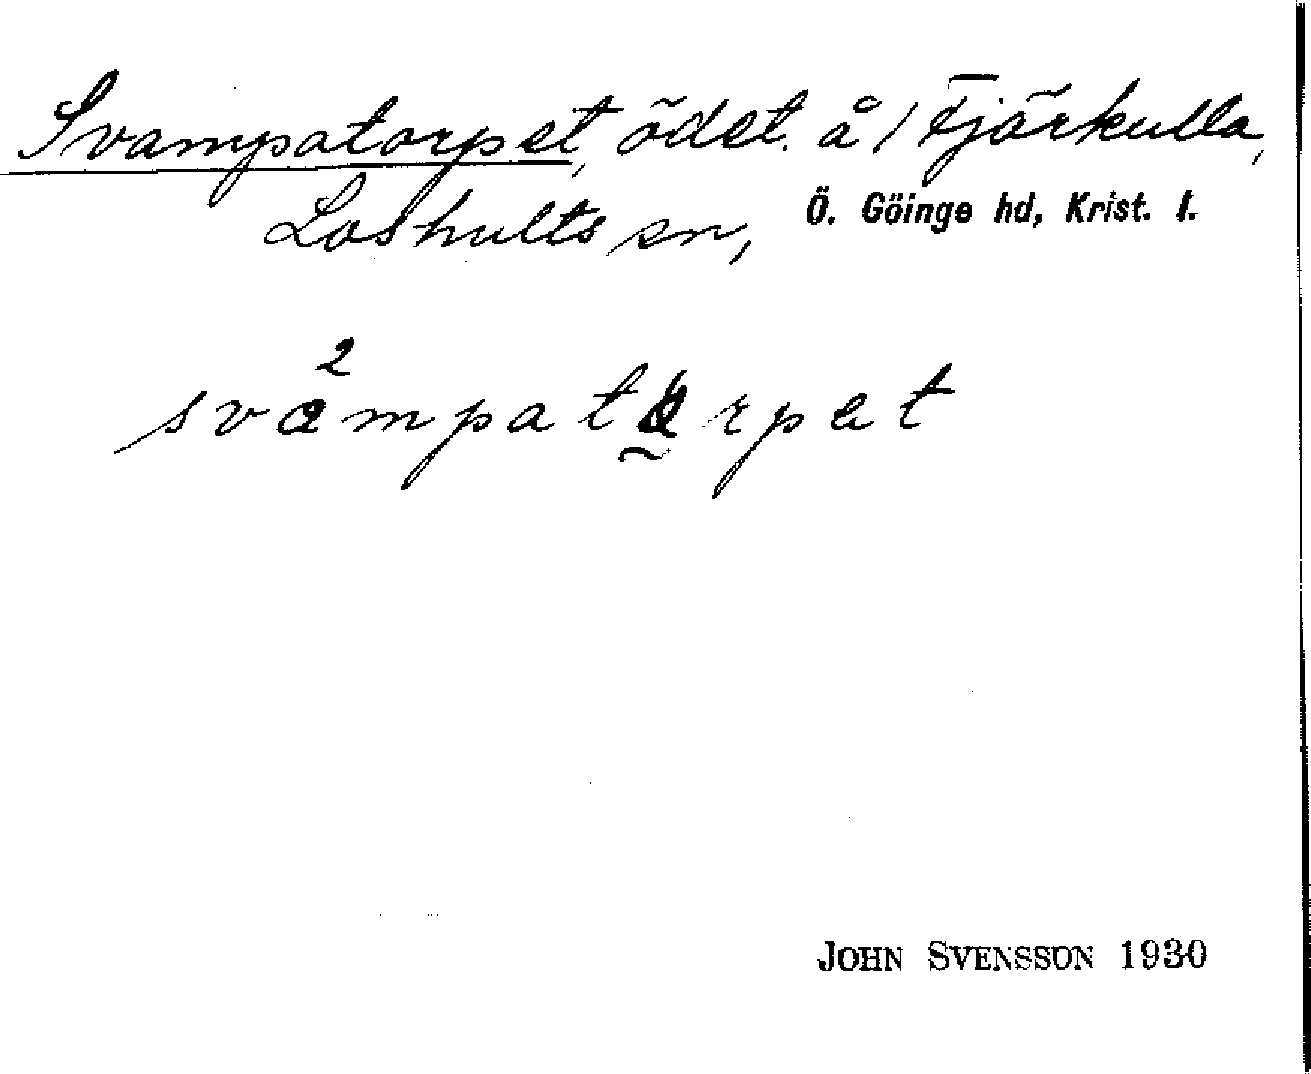 Svampatorpet, ödet. å 1 Tjärkulla,
Loshults sn, Ö. Göinge hd, Krist. l.
2
JOHN SVENSSON 1930